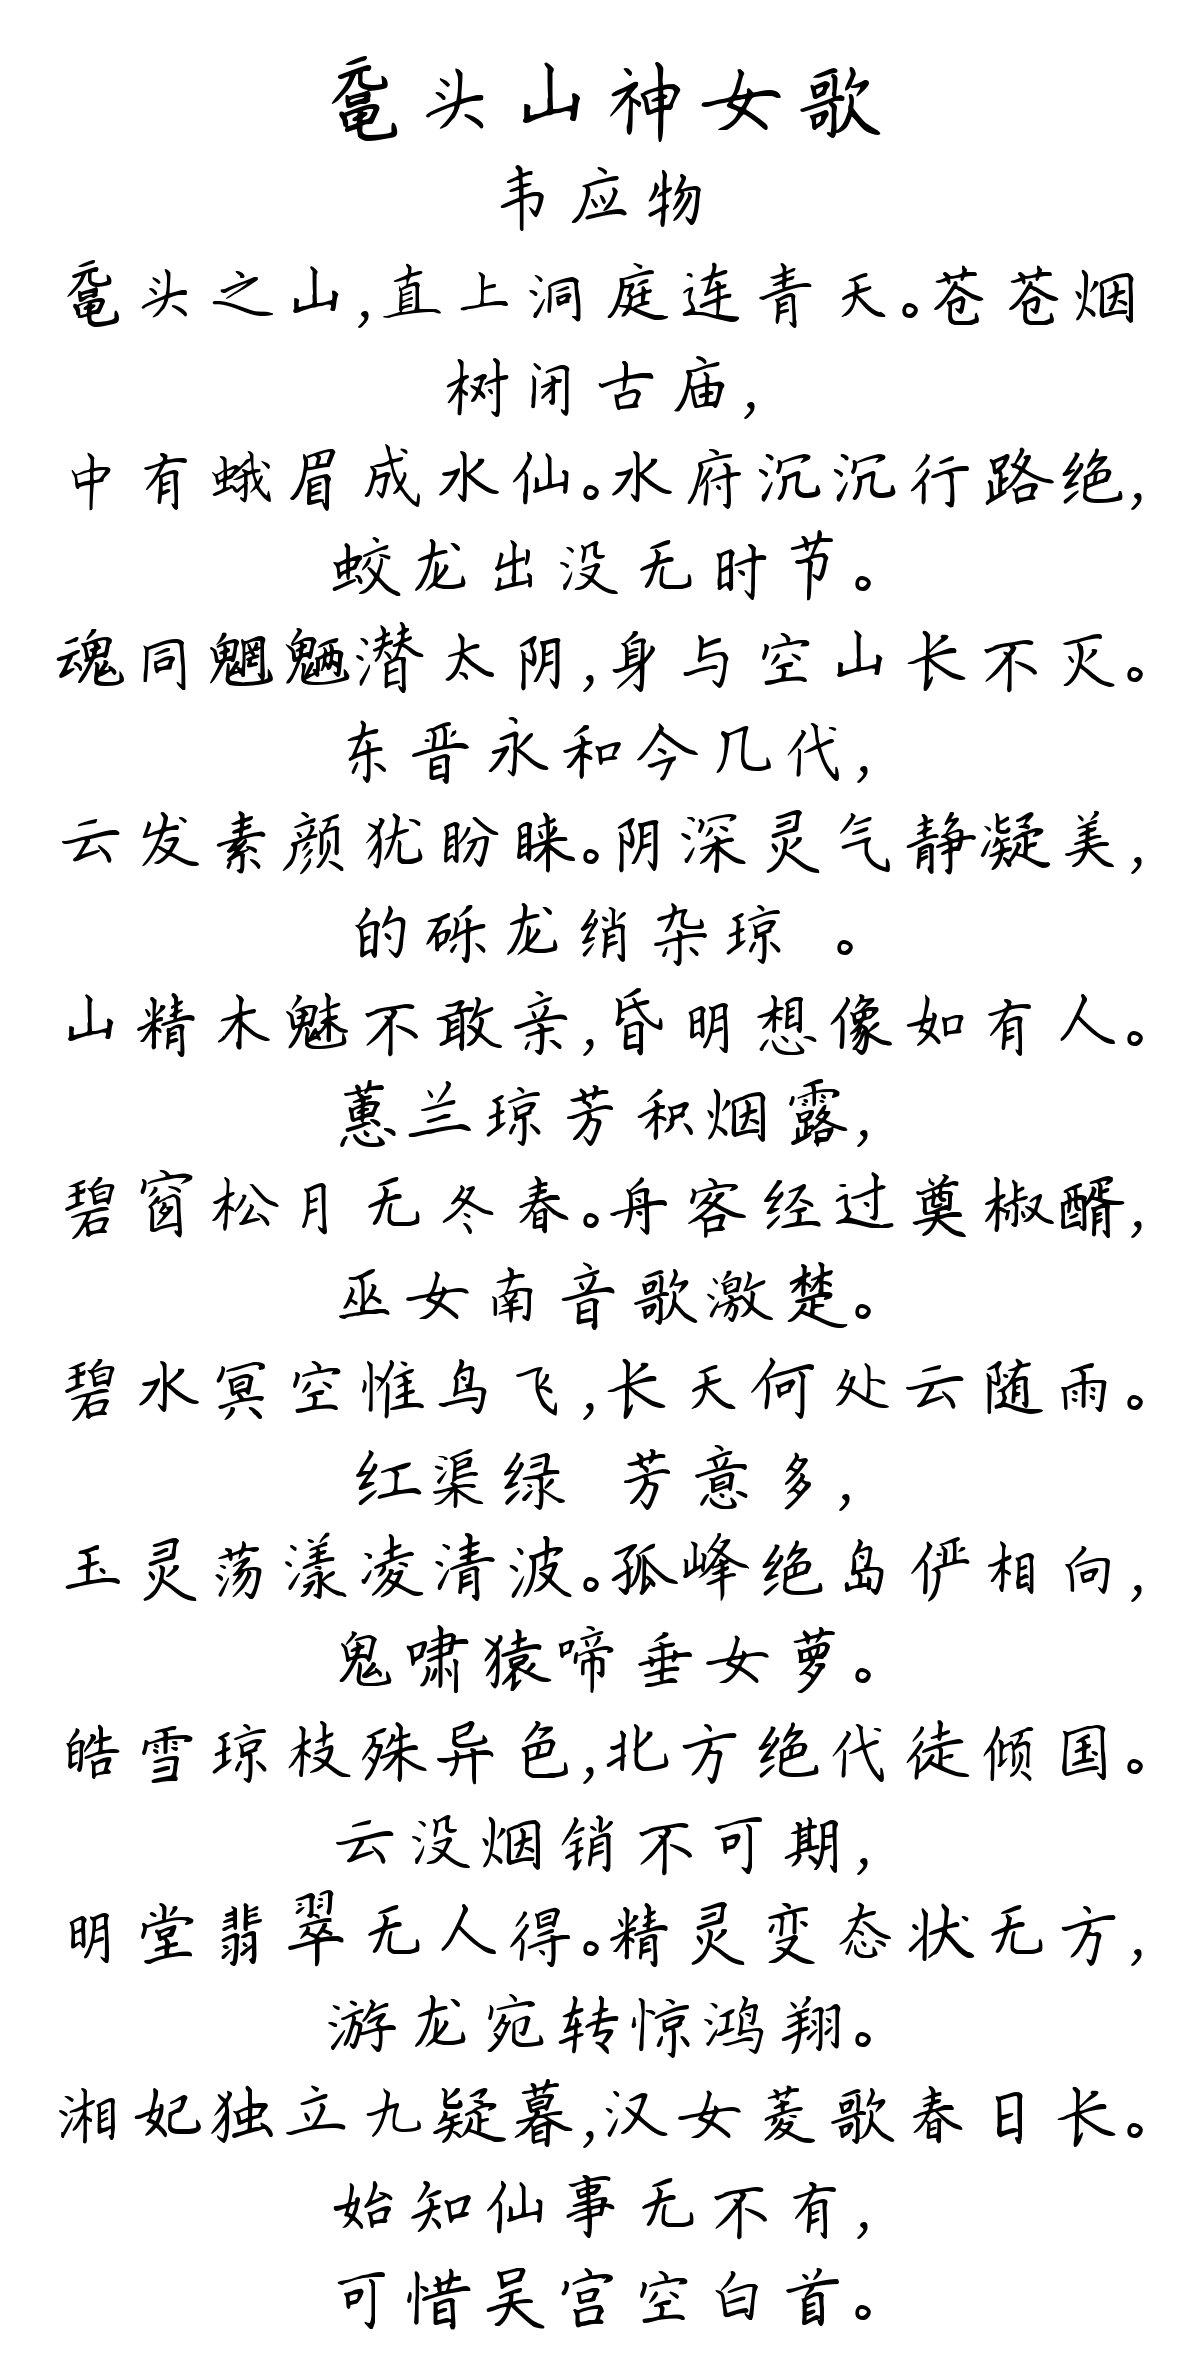 鼋头山神女歌
韦应物
鼋头之山,直上洞庭连青天。苍苍烟
树闭古庙,
中有蛾眉成水仙。水府沉沉行路绝,
蛟龙出没无时节。
魂同魍魉潜太阴,身与空山长不灭。
东晋永和今几代,
云发素颜犹盼睐。阴深灵气静凝美,
的砾龙绡杂琼 。
山精木魅不敢亲,昏明想像如有人。
蕙兰琼芳积烟露,
碧窗松月无冬春。舟客经过奠椒醑,
巫女南音歌激楚。
碧水冥空惟鸟飞,长天何处云随雨。
红渠绿 芳意多,
玉灵荡漾凌清波。孤峰绝岛俨相向,
鬼啸猿啼垂女萝。
皓雪琼枝殊异色,北方绝代徒倾国。
云没烟销不可期,
明堂翡翠无人得。精灵变态状无方,
游龙宛转惊鸿翔。
湘妃独立九疑暮,汉女菱歌春日长。
始知仙事无不有,
可惜吴宫空白首。